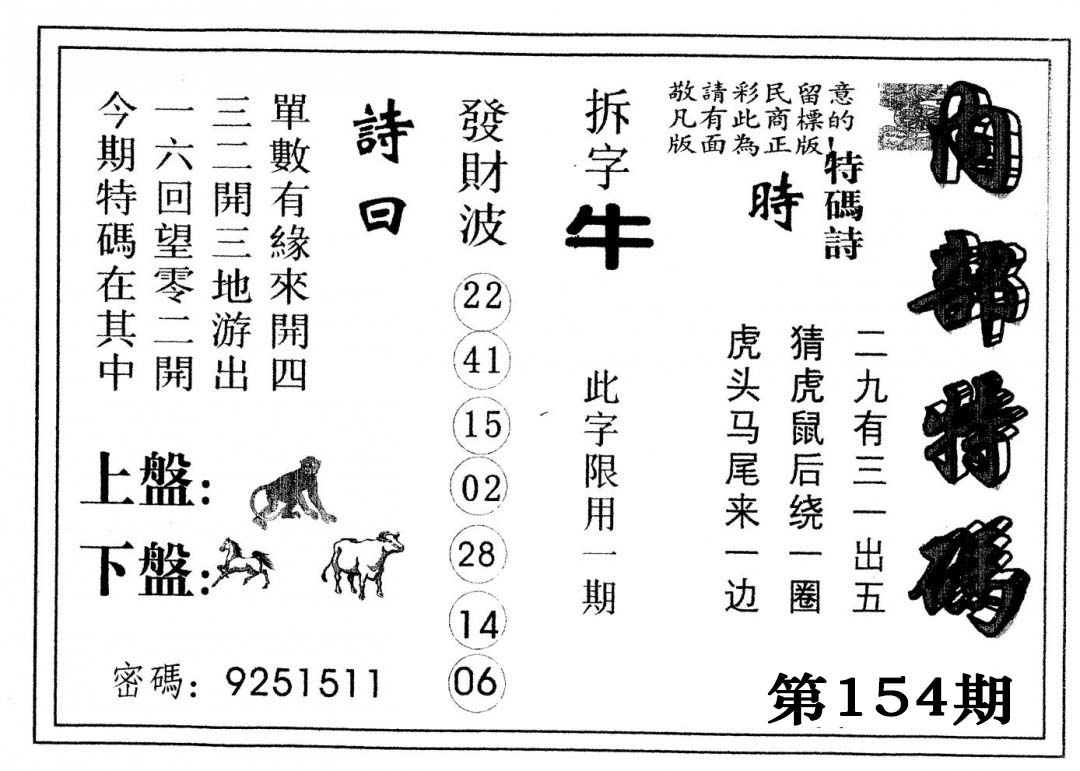 内部特碼
第154期
敬請彩民留意
凡有此商標的
版面為正版!
特碼詩
時
二九有三一出五
猜虎鼠后绕一圈
虎头马尾来一边
拆字
牛
此字限用一期
發財波
22
41
15
02
28
14
06
詩曰
單數有緣來開四
三二開三地游出
一六回望零二開
今期特碼在其中
上盤:
下盤:
密碼: 9251511